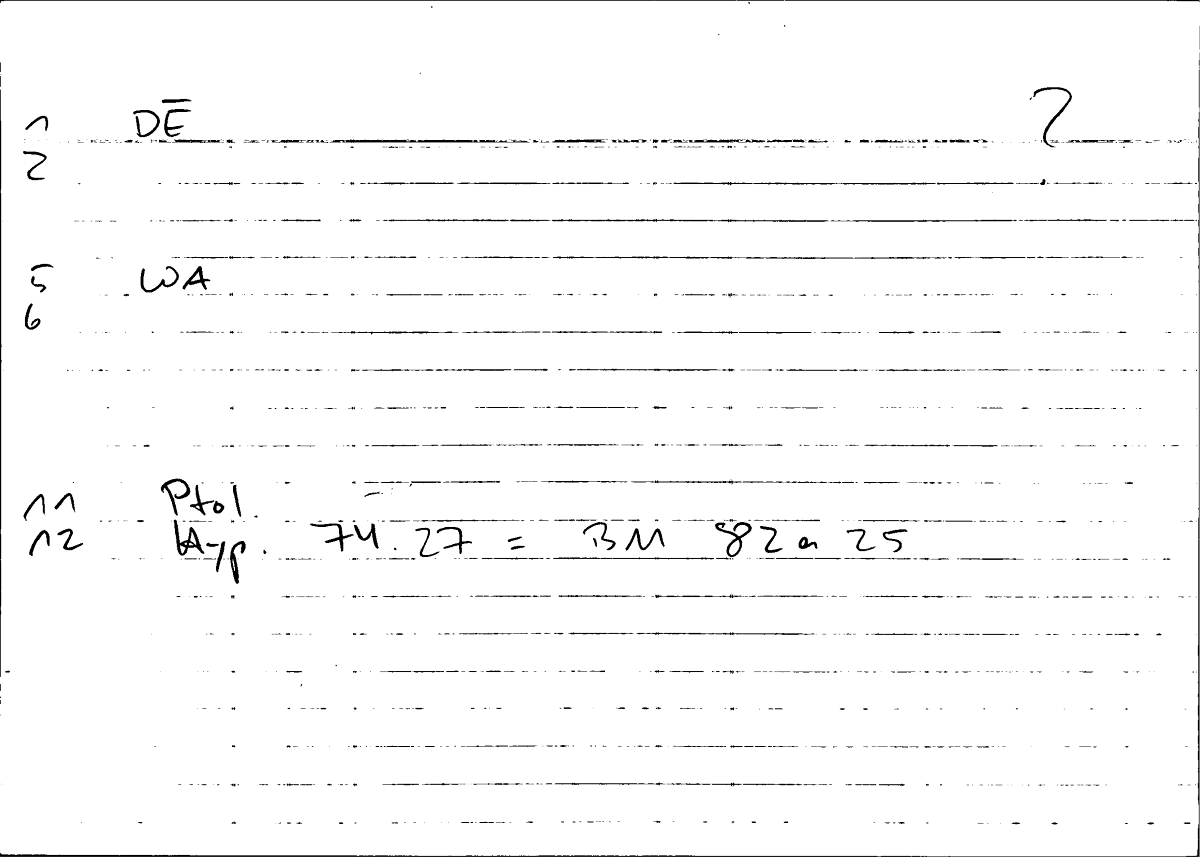 1 DĒ ?
2
5 WA
6
11 Ptol.
12 Hyp. 74.27 = BM 82a 25